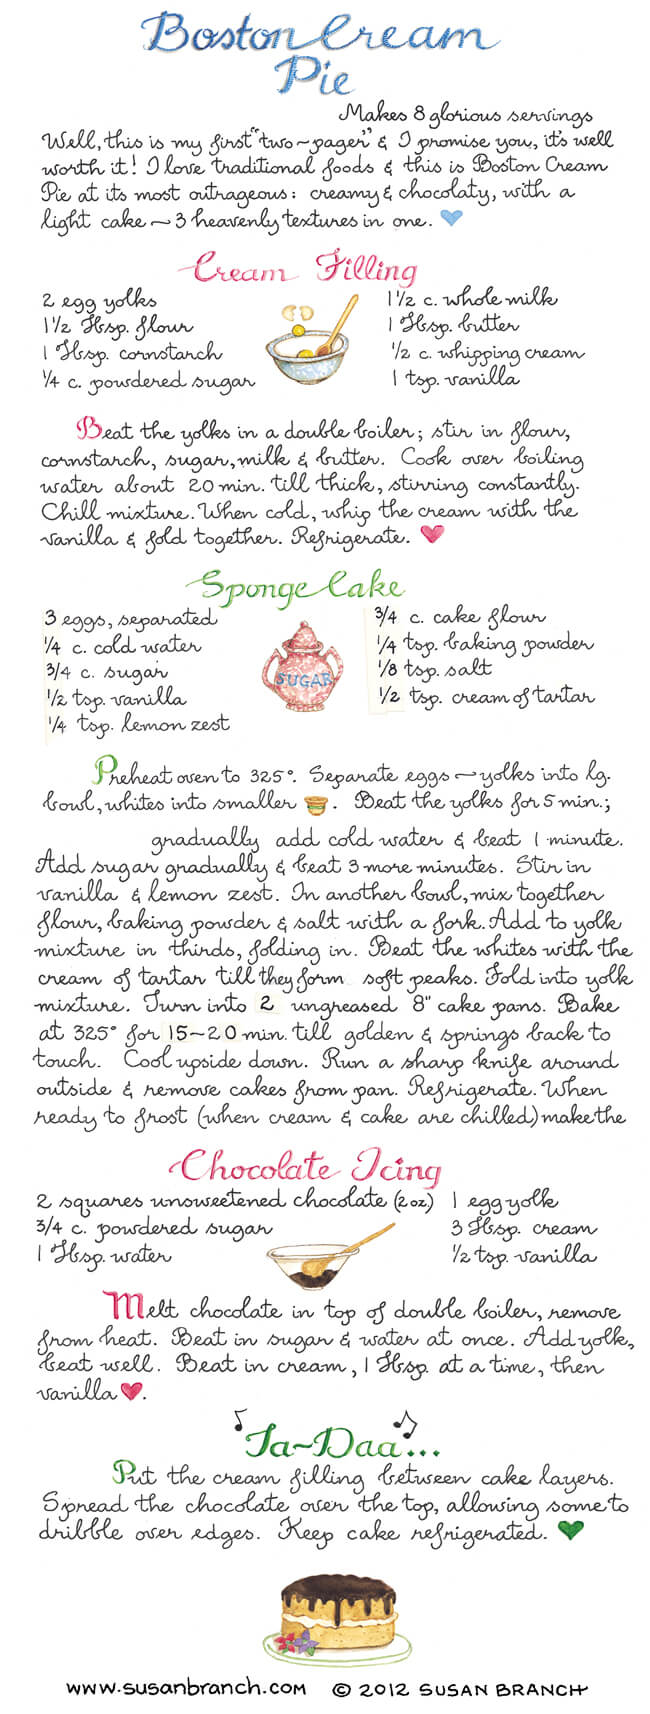 Boston Cream
Pie
Makes 8 glorious servings
Well, this is my first "two~pager" & I promise you, it's well
worth it! I love traditional foods & this is Boston Cream
Pie at its most outrageous: creamy & chocolaty, with a
light cake ~ 3 heavenly textures in one.
Cream Filling
2 egg yolks
1 1/2 Tbsp. flour
1 Tbsp. cornstarch
1/4 c. powdered sugar
1 1/2 c. whole milk
1 Tbsp. butter
1/2 c. whipping cream
1 tsp. vanilla
Beat the yolks in a double boiler; stir in flour,
cornstarch, sugar, milk & butter. Cook over boiling
water about 20 min. till thick, stirring constantly.
Chill mixture. When cold, whip the cream with the
vanilla & fold together. Refrigerate.
Sponge Cake
3 eggs, separated
1/4 c. cold water
3/4 c. sugar
1/2 tsp. vanilla
1/4 tsp. lemon zest
SUGAR
3/4 c. cake flour
1/4 tsp. baking powder
1/8 tsp. salt
1/2 tsp. cream of tartar
Preheat oven to 325°. Separate eggs ~ yolks into lg.
bowl, whites into smaller . Beat the yolks for 5 min.;
gradually add cold water & beat 1 minute.
Add sugar gradually & beat 3 more minutes. Stir in
vanilla & lemon zest. In another bowl, mix together
flour, baking powder & salt with a fork. Add to yolk
mixture in thirds, folding in. Beat the whites with the
cream of tartar till they form soft peaks. Fold into yolk
mixture. Turn into 2 ungreased 8" cake pans. Bake
at 325° for 15~20 min. till golden & springs back to
touch. Cool upside down. Run a sharp knife around
outside & remove cakes from pan. Refrigerate. When
ready to frost (when cream & cake are chilled) make the
Chocolate Icing
2 squares unsweetened chocolate (2 oz.)
3/4 c. powdered sugar
1 Tbsp. water
1 egg yolk
3 Tbsp. cream
1/2 tsp. vanilla
Melt chocolate in top of double boiler, remove
from heat. Beat in sugar & water at once. Add yolk,
beat well. Beat in cream, 1 Tbsp. at a time, then
vanilla .
Ta~Daa...
Put the cream filling between cake layers.
Spread the chocolate over the top, allowing some to
dribble over edges. Keep cake refrigerated.
www.susanbranch.com © 2012 SUSAN BRANCH